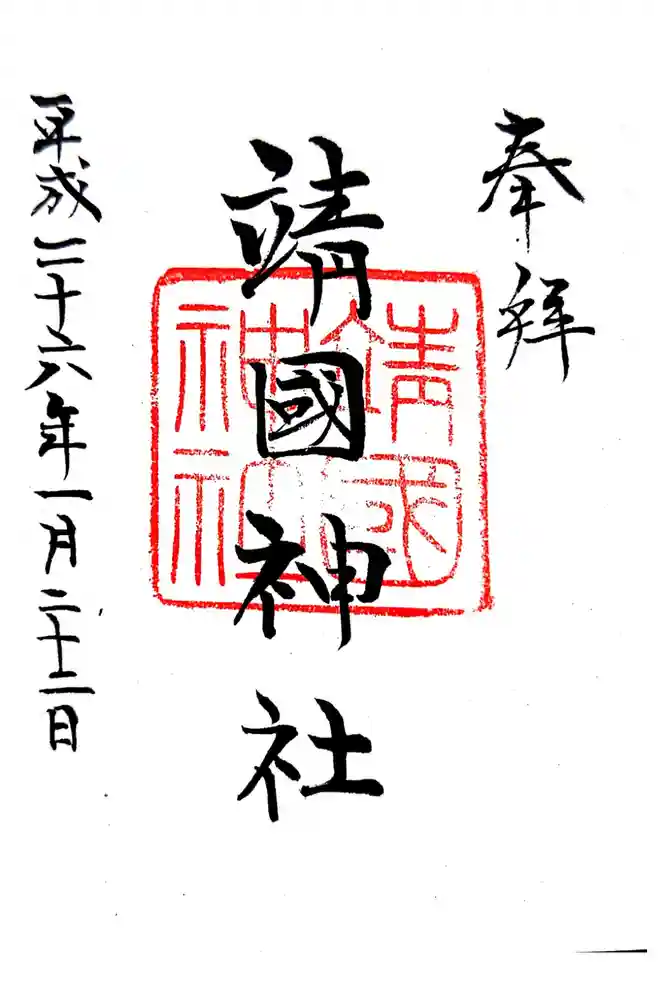 奉拝
靖國神社
靖国
神社
平成二十六年一月二十二日